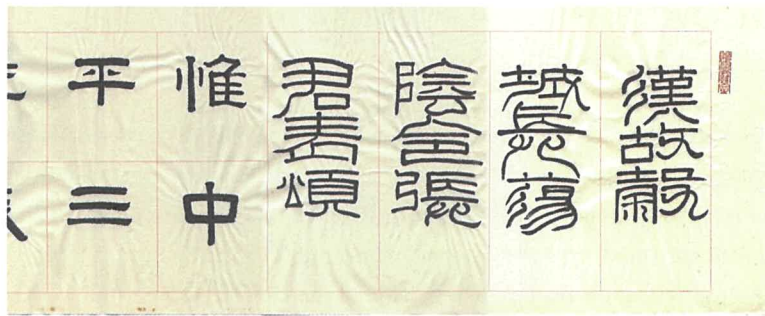 漢故穀
城長蕩
陰令張
君表頌
惟中
平三